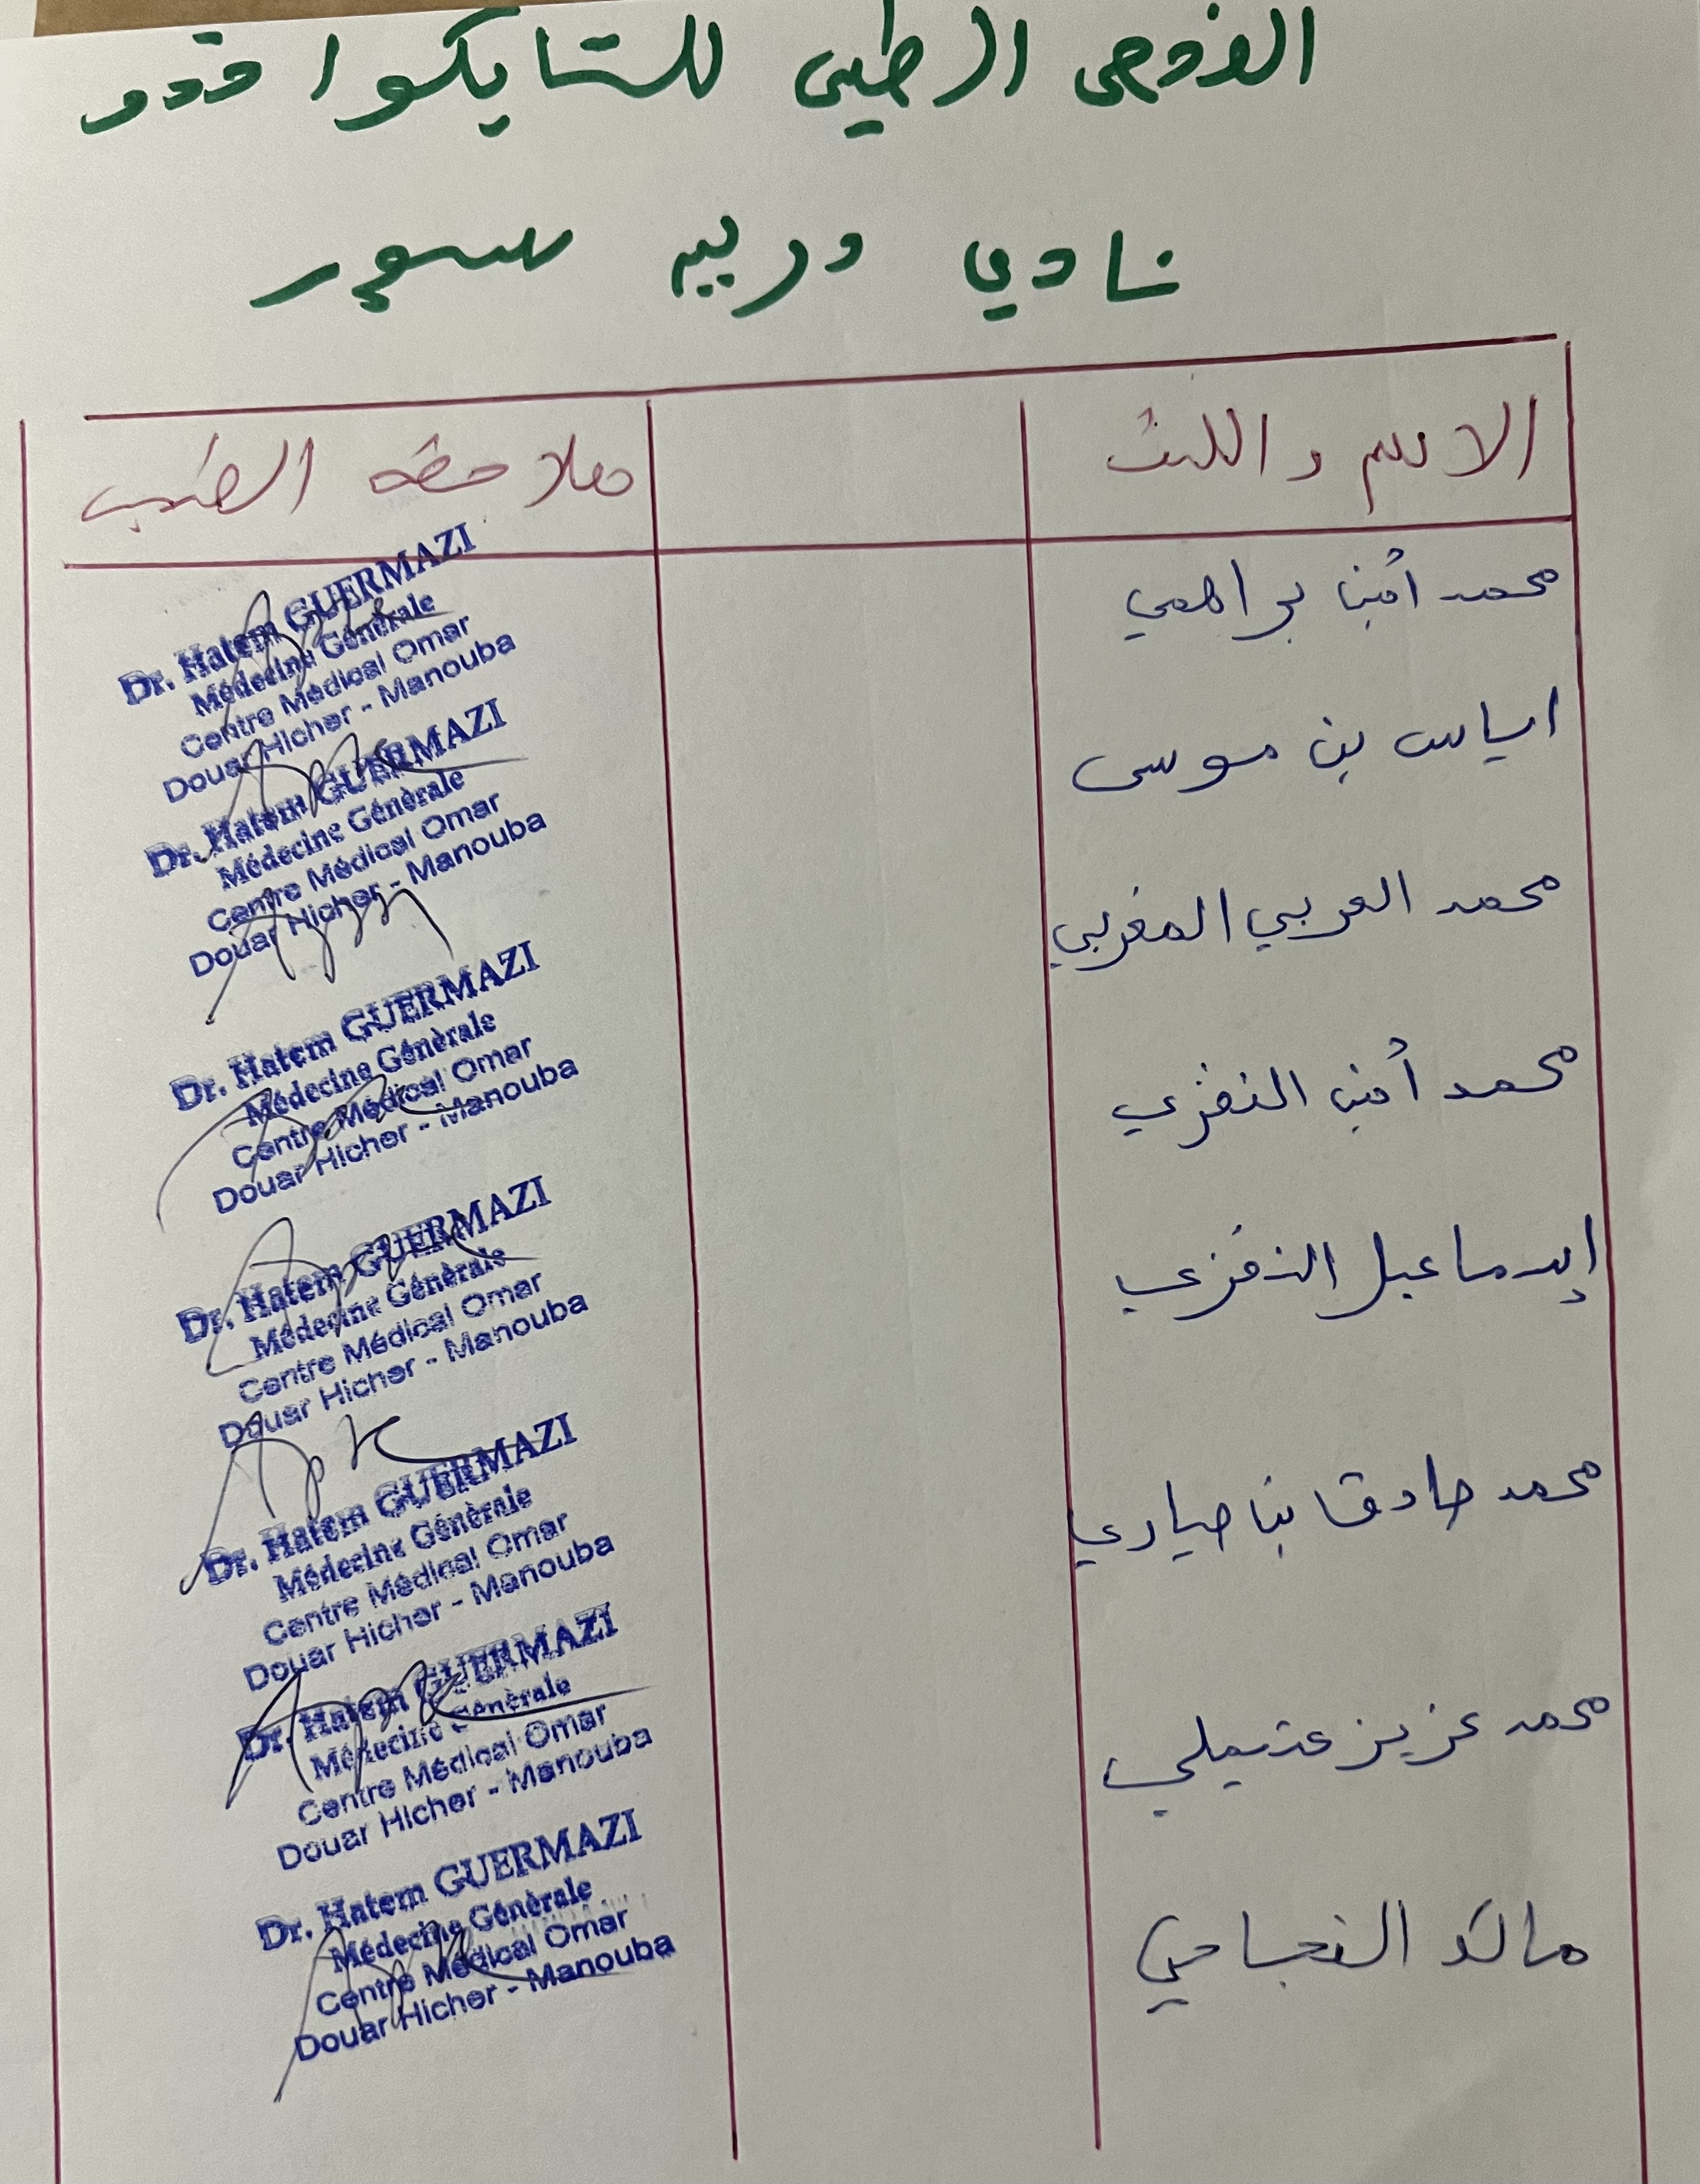 الفحص الطبي للتايكواندو
نادي
الاسم و اللقب
ملاحظة الطبيب
محمد أمين براهمي
الياس بن موسى
محمد العربي المغربي
محمد أمين النفزي
إسماعيل النفزي
محمد صادق بن
محمد عزيز عتيملي
مالك
Dr. Hatem GUERMAZI
Médecine Générale
Centre Médical Omar
Douar Hicher - Manouba
Dr. Hatem GUERMAZI
Médecine Générale
Centre Médical Omar
Douar Hicher - Manouba
Dr. Hatem GUERMAZI
Médecine Générale
Centre Médical Omar
Douar Hicher - Manouba
Dr. Hatem GUERMAZI
Médecine Générale
Centre Médical Omar
Douar Hicher - Manouba
Dr. Hatem GUERMAZI
Médecine Générale
Centre Médical Omar
Douar Hicher - Manouba
Dr. Hatem GUERMAZI
Médecine Générale
Centre Médical Omar
Douar Hicher - Manouba
Dr. Hatem GUERMAZI
Médecine Générale
Centre Médical Omar
Douar Hicher - Manouba